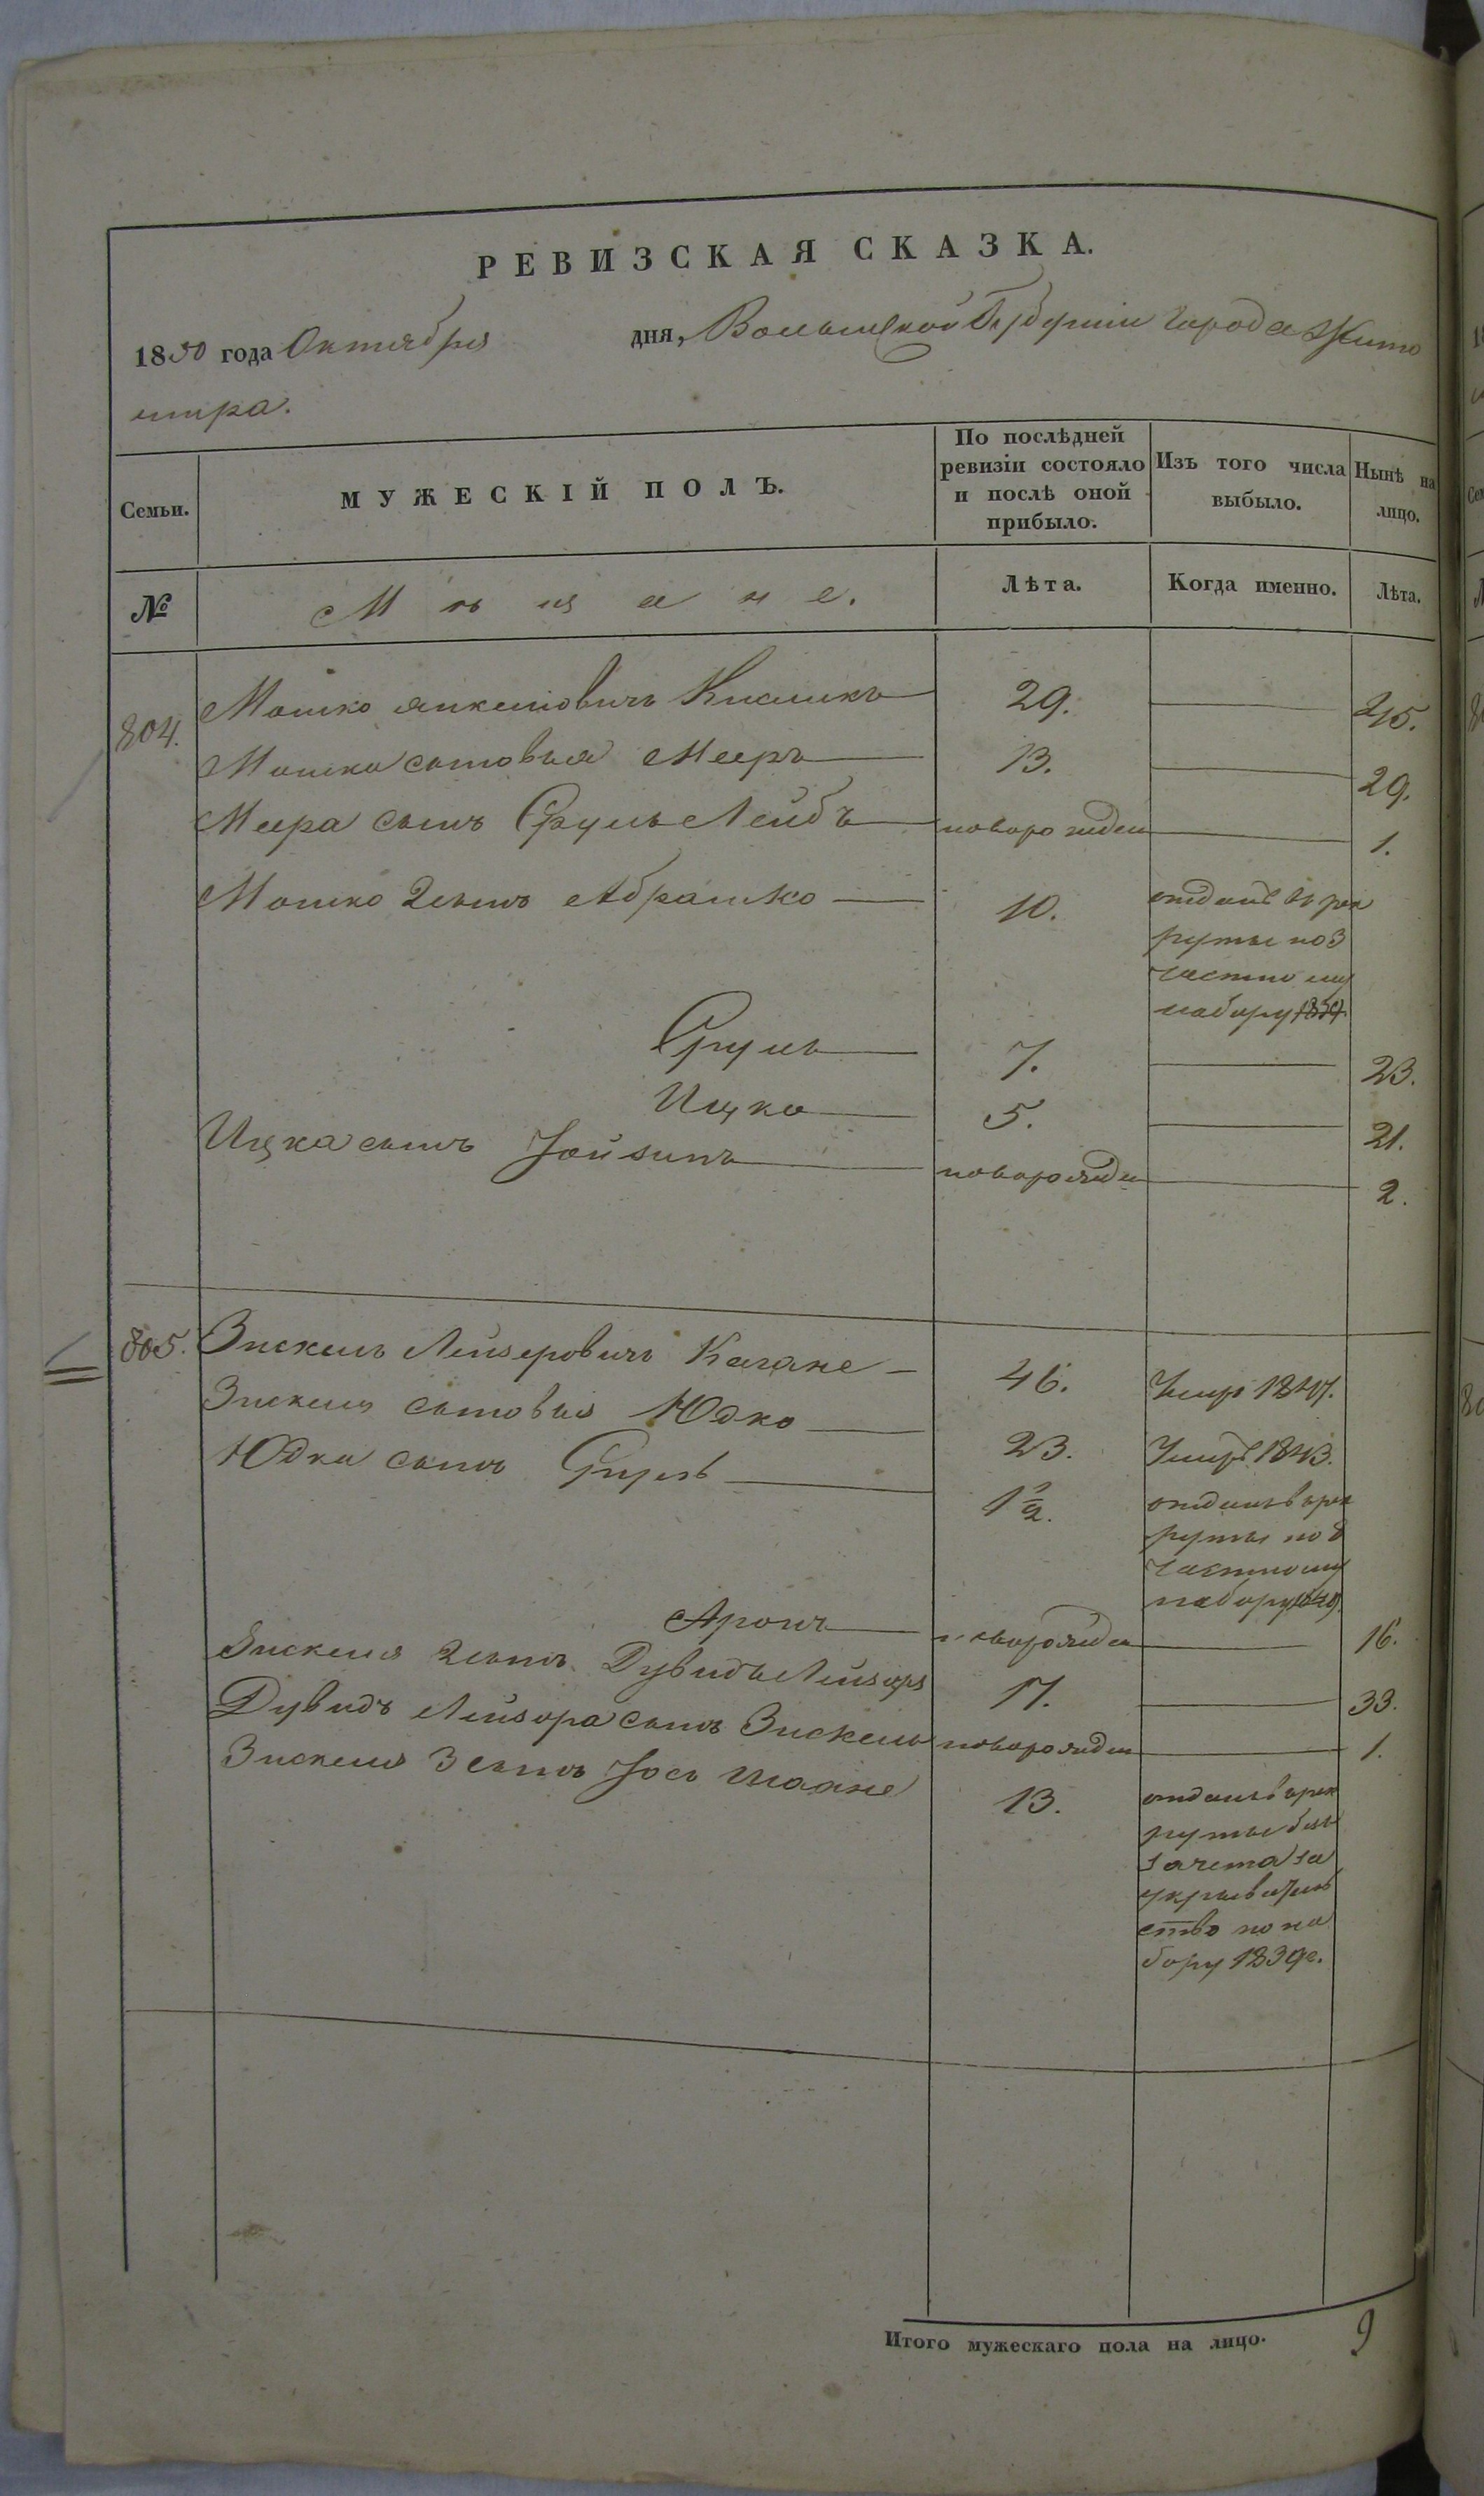 РЕВИЗСКАЯ СКАЗКА.
1850 года Октября дня, Волынской Губернии города Жито
мира.
Семьи.
МУЖЕСКІЙ ПОЛЪ.
По послѣдней ревизіи состояло и послѣ оной прибыло.
Изъ того числа выбыло.
Нынѣ на лицо.
№
Мѣщане.
Лѣта.
Когда именно.
Лѣта.
804. Мошко Янкелiовичъ 29. 45.
Мошка сыновья Мееръ 13. 29.
Меера сынъ Сруль Лейбъ новорожден 1.
Мошко 2 сынъ Абрашко 10. отданъ въ рек
руты по 3
частному
набору
Сруль 7. 23.
Ицко 5. 21.
Ицка сынъ новорожден 2.
805. Зискель Лейзеровичъ Кагане 46. Умеръ 1847.
Зискеля сыновья Юдко 23. Умеръ 1843.
Юдки сынъ 1½. отданъ в рек
руты по 8
частному
набору 1849
Аронъ новорожден 16.
Зискеля 2 сынъ Дувидъ Лейзоръ 17. 33.
Дувидъ Лейзора сынъ Зискель новорожден 1.
Зискеля 3 сынъ Іось 13. отданъ в рек
руты безъ
зачета за
укрыватель
ство по на
бору 1839 г.
Итого мужескаго пола на лицо. 9